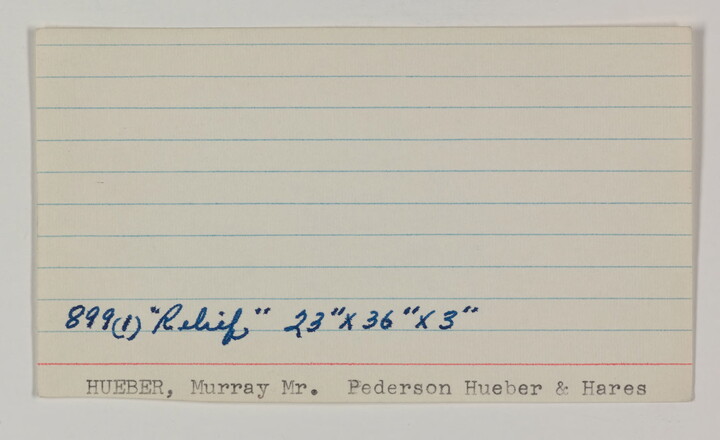 899(1) "Relief" 23" X 36" X 3"
HUEBER, Murray Mr. Pederson Hueber & Hares